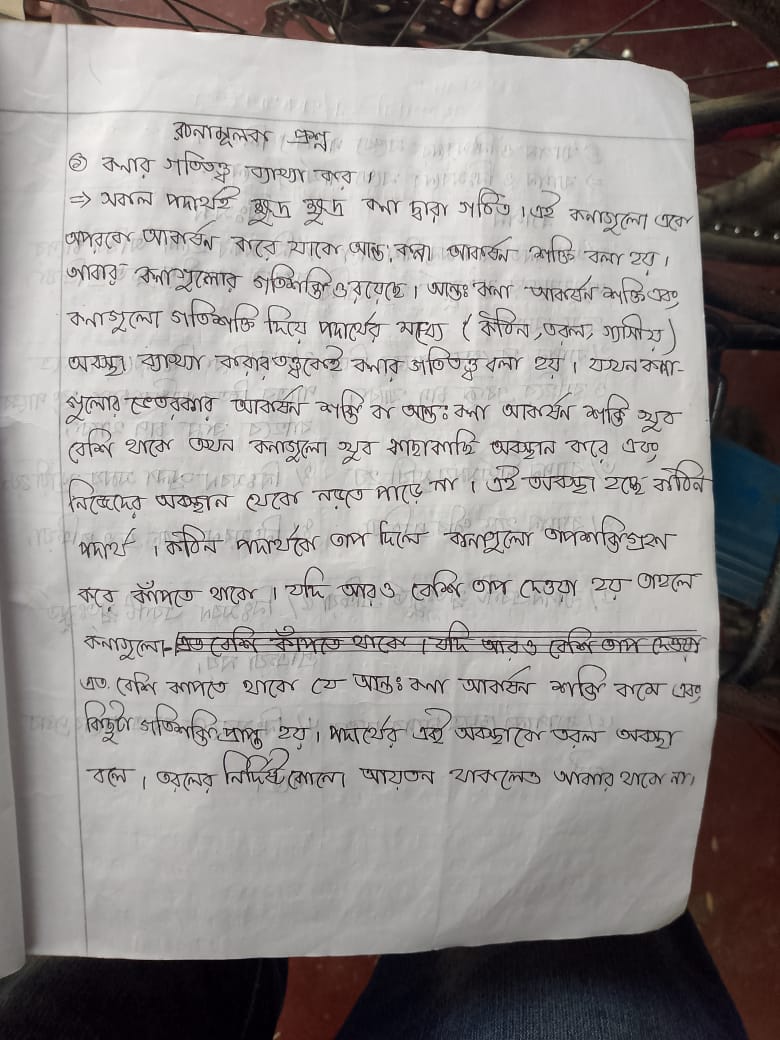 রচনামূলক প্রশ্ন
৬ কনার গতিতত্ত্ব ব্যাখ্যা কর।
=> সকল পদার্থই ক্ষুদ্র ক্ষুদ্র কনা দ্বারা গঠিত। এই কনাগুলো একে
অপরকে আকর্ষন করে যাকে আন্তঃকনা আকর্ষন শক্তি বলা হয়।
আবার কনাগুলোর গতিশক্তিও রয়েছে। আন্তঃকনা আকর্ষন শক্তি এবং
কনাগুলো গতিশক্তি দিয়ে পদার্থের মধ্যে (কঠিন, তরল, গ্যাসীয়)
অবস্থা ব্যাখ্যা করার তত্ত্বকেই কনার গতিতত্ত্ব বলা হয়। যখন কনা-
গুলোর ভেতরকার আকর্ষন শক্তি বা আন্তঃকনা আকর্ষন শক্তি খুব
বেশি থাকে তখন কনাগুলো খুব কাছাকাছি অবস্থান করে এবং
নিজেদের অবস্থান থেকে নড়তে পাড়ে না। এই অবস্থা হচ্ছে কঠিন
পদার্থ। কঠিন পদার্থকে তাপ দিলে কনাগুলো তাপশক্তি গ্রহন
করে কাঁপতে থাকে। যদি আরও বেশি তাপ দেওয়া হয় তাহলে
কনাগুলো- এত বেশি কাঁপতে থাকে। যদি আরও বেশি তাপ দেওয়া
এত বেশি কাপতে থাকে যে আন্তঃকনা আকর্ষন শক্তি কমে এবং
কিছুটা গতিশক্তি প্রাপ্ত হয়। পদার্থের এই অবস্থাকে তরল অবস্থা
বলে। তরলের নির্দিষ্ট কোনো আয়তন থাকলেও আকার থাকে না।